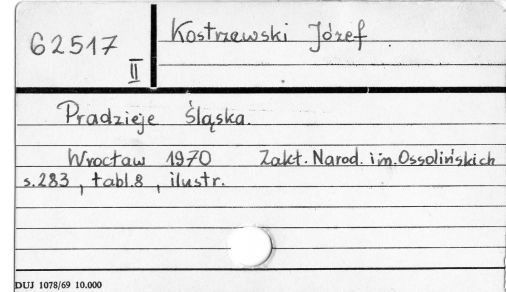 62517
II
Kostrzewski Józef
Pradzieje Śląska.
Wrocław 1970 Zakt. Narod. im. Ossolińskich
s.283, tabl.8, ilustr.
DUJ 1078/69 10.000